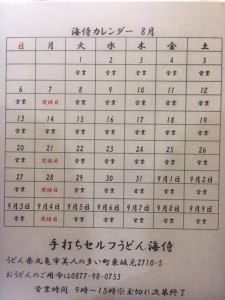 海侍カレンダー 8月
日 月 火 水 木 金 土
1 2 3 4 5
営業 営業 営業 営業 営業
6 7 8 9 10 11 12
営業 定休日 営業 営業 営業 営業 営業
13 14 15 16 17 18 19
営業 営業 営業 営業 営業 営業 営業
20 21 22 23 24 25 26
営業 定休日 営業 営業 営業 営業 営業
27 28 29 30 31 9月1日 9月2日
営業 定休日 営業 営業 営業 営業 営業
9月3日 9月4日 9月5日 9月6日 9月7日 9月8日 9月9日
営業 定休日 営業 営業 営業 営業 営業
手打ちセルフうどん海侍
うどん県丸亀市美人の多い町東城元2710-5
おうどんのご用命は0877-98-0753
営業時間 9時～15時※玉切れ次第終了